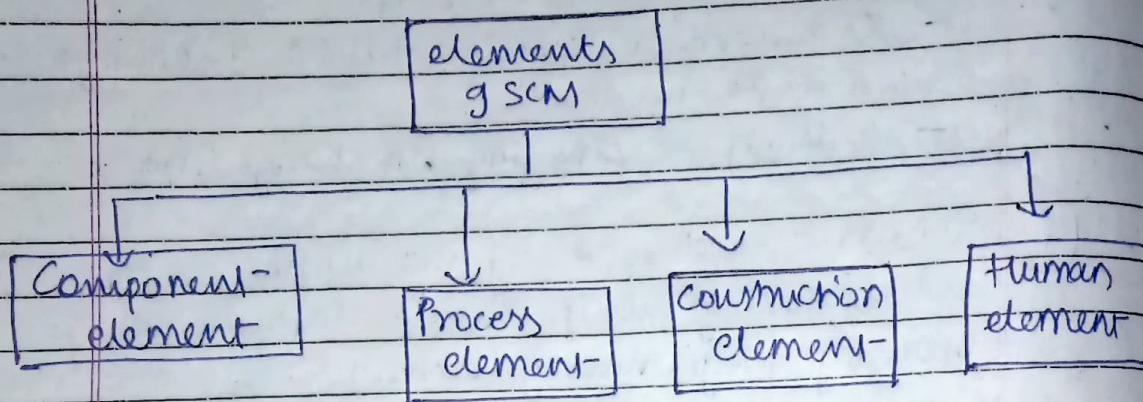 elements
of SCM
Component
element
Process
element
Construction
element
Human
element